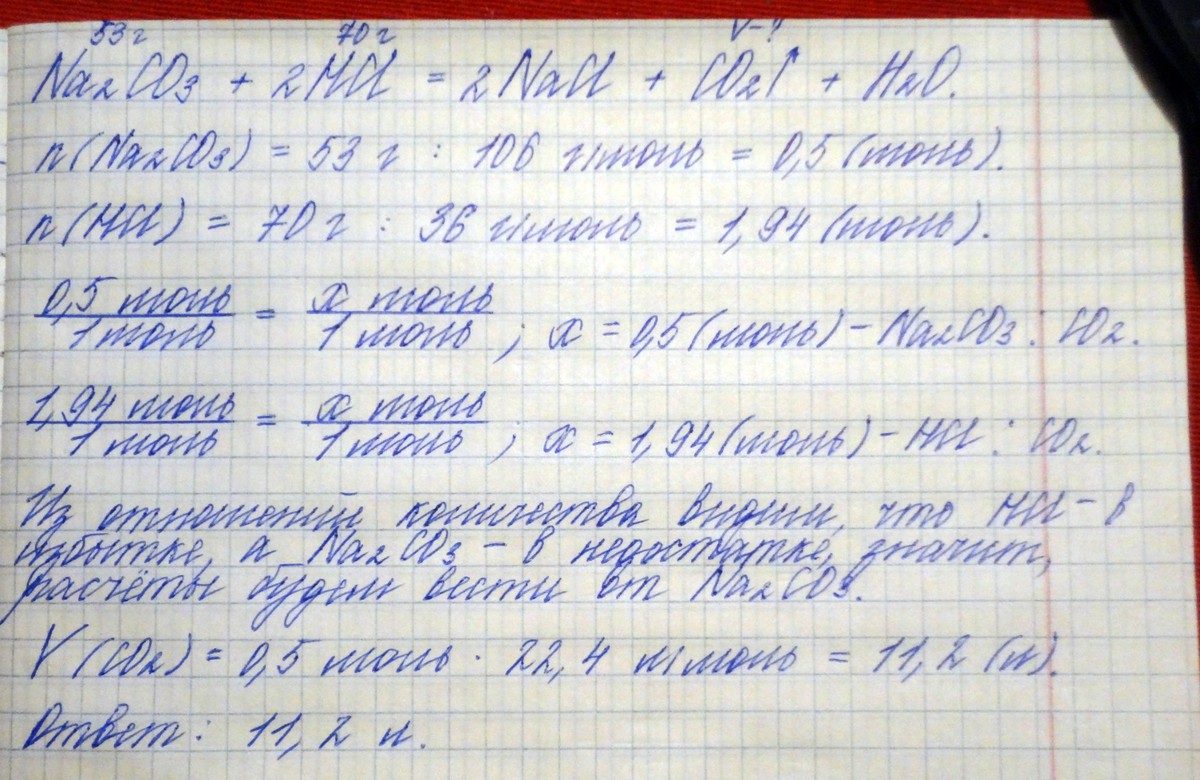 53 г 70 г V-?
Na₂CO₃ + 2HCl = 2NaCl + CO₂↑ + H₂O.
n(Na₂CO₃) = 53 г : 106 г/моль = 0,5 (моль).
n(HCl) = 70 г : 36 г/моль = 1,94 (моль).
0,5 моль / 1 моль = x моль / 1 моль ; x = 0,5 (моль) – Na₂CO₃ : CO₂.
1,94 моль / 1 моль = x моль / 1 моль ; x = 1,94 (моль) – HCl : CO₂.
Из отношений количества видим, что HCl – в
избытке, а Na₂CO₃ – в недостатке, значит,
расчёты будем вести от Na₂CO₃.
V(CO₂) = 0,5 моль · 22,4 л/моль = 11,2 (л).
Ответ: 11,2 л.